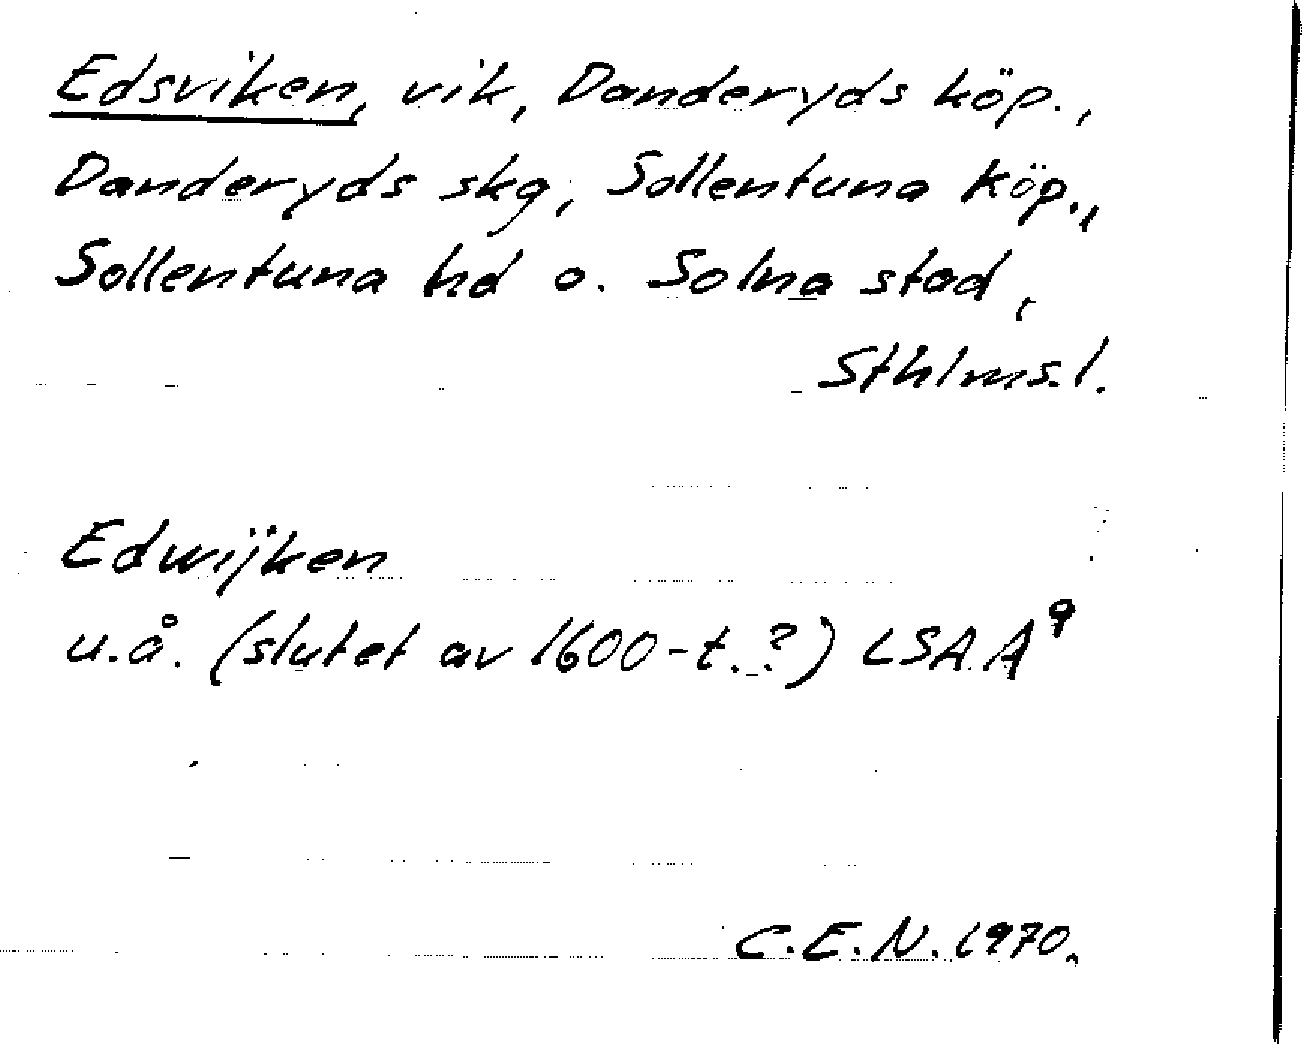 Edsviken, vik, Danderyds köp.,
Danderyds skg, Sollentuna köp.,
Sollentuna hd o. Solna stad,
Sthlms.l.
Edwijken
u.å. (slutet av 1600-t.?) LSA A⁹
C.E.N. 1970.